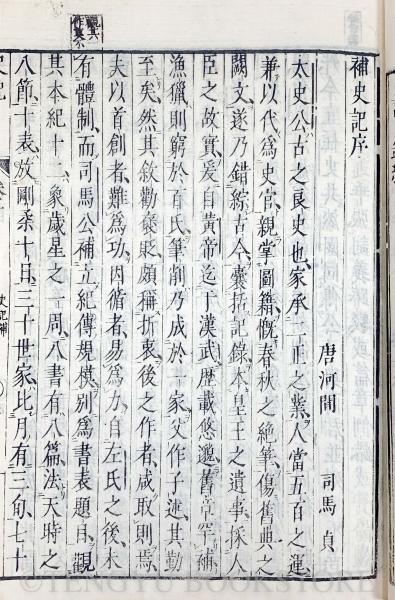 補史記序
唐河間　司馬貞
太史公古之良史也家承二正之業人當五百之運
兼以代爲史官親掌圖籍慨春秋之絶筆傷舊典之
闕文遂乃錯綜古今囊括記錄本皇王之遺事採人
臣之故實爰自黄帝迄于漢武歴載悠邈舊章罕補
漁獵則窮於百氏筆削乃成於一家父作子述其勤
至矣然其敘勸褒貶頗稱折衷後之作者咸取則焉
夫以首創者難爲功因循者易爲力自左氏之後未
有體制而司馬公補立紀傳規模别爲書表題目觀
其本紀十二象歳星之一周八書有八篇法天時之
八節十表放剛柔十日三十世家比月有三旬七十
觀其一
史記補
TENGYU BOOKSTORE